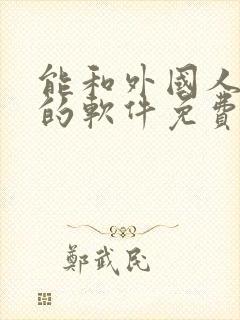 能和外國人
的軟件免費
鄭武民